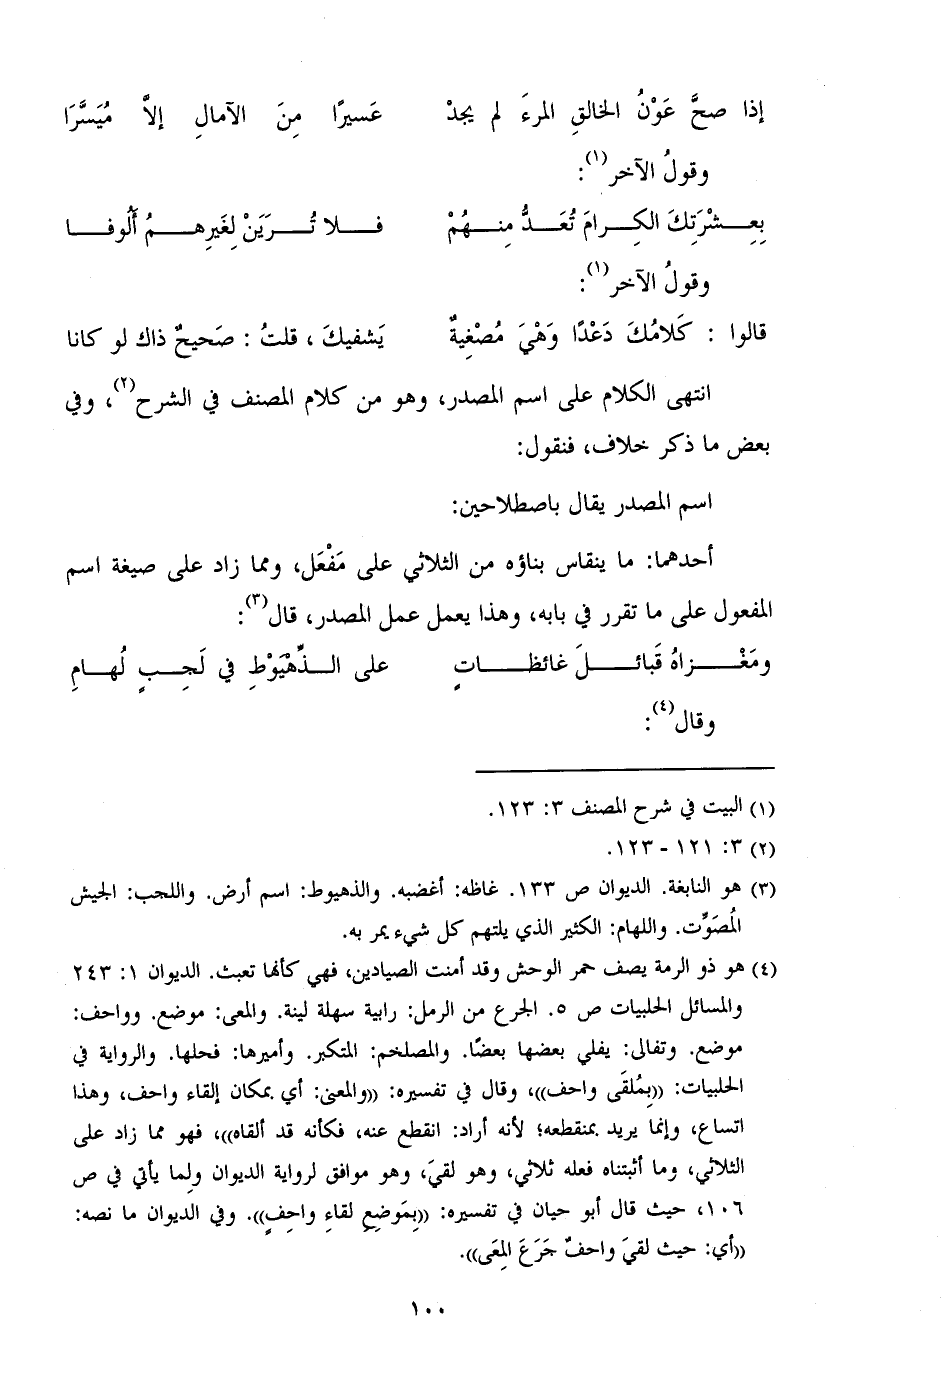 إذا صحَّ عَوْنُ الخالقِ المرءَ لم يجدْ عَسيرًا مِنَ الآمالِ إلاَّ مُيَسَّرَا
وقولُ الآخر(١):
بِعِـشْرَتِكَ الكِـرامَ تُعَـدُّ مِنـهُمْ فـلا تُـرَيَنْ لِغَيرِهـمُ أَلُوفـا
وقولُ الآخر(١):
قالوا : كَلامُكَ دَعْدًا وَهْيَ مُصْغِيةٌ يَشفيكَ ، قلتُ : صَحيحٌ ذاك لو كانا
انتهى الكلام على اسم المصدر، وهو من كلام المصنف في الشرح(٢)، وفي
بعض ما ذكر خلاف، فنقول:
اسم المصدر يقال باصطلاحين:
أحدهما: ما ينقاس بناؤه من الثلاثي على مَفْعَل، ومما زاد على صيغة اسم
المفعول على ما تقرر في بابه، وهذا يعمل عمل المصدر، قال(٣):
ومَغْـزاهُ قَبائـلَ غائظـاتٍ على الـذِّهْيَوْطِ في لَجِـبٍ لُهـامِ
وقال(٤):
(١) البيت في شرح المصنف ٣: ١٢٣.
(٢) ٣: ١٢١ - ١٢٣.
(٣) هو النابغة. الديوان ص ١٣٣. غاظه: أغضبه. والذهيوط: اسم أرض. واللجب: الجيش
المُصَوِّت. واللهام: الكثير الذي يلتهم كل شيء يمر به.
(٤) هو ذو الرمة يصف حمر الوحش وقد أمنت الصيادين، فهي كأنها تعبث. الديوان ١: ٢٤٣
والمسائل الحلبيات ص ٥. الجرع من الرمل: رابية سهلة لينة. والمعى: موضع. وواحف:
موضع. وتفالى: يفلي بعضها بعضًا. والمصلخم: المتكبر. وأميرها: فحلها. والرواية في
الحلبيات: ((بِمُلقَى واحف))، وقال في تفسيره: ((والمعنى: أي بمكان إلقاء واحف، وهذا
اتساع، وإنما يريد بمنقطعه؛ لأنه أراد: انقطع عنه، فكأنه قد ألقاه))، فهو مما زاد على
الثلاثي، وما أثبتناه فعله ثلاثي، وهو لقيَ، وهو موافق لرواية الديوان ولِما يأتي في ص
١٠٦، حيث قال أبو حيان في تفسيره: ((بِمَوضِعِ لقاءِ واحِفٍ)). وفي الديوان ما نصه:
((أي: حيث لقيَ واحفٌ جَرَعَ المِعَى)).
١٠٠